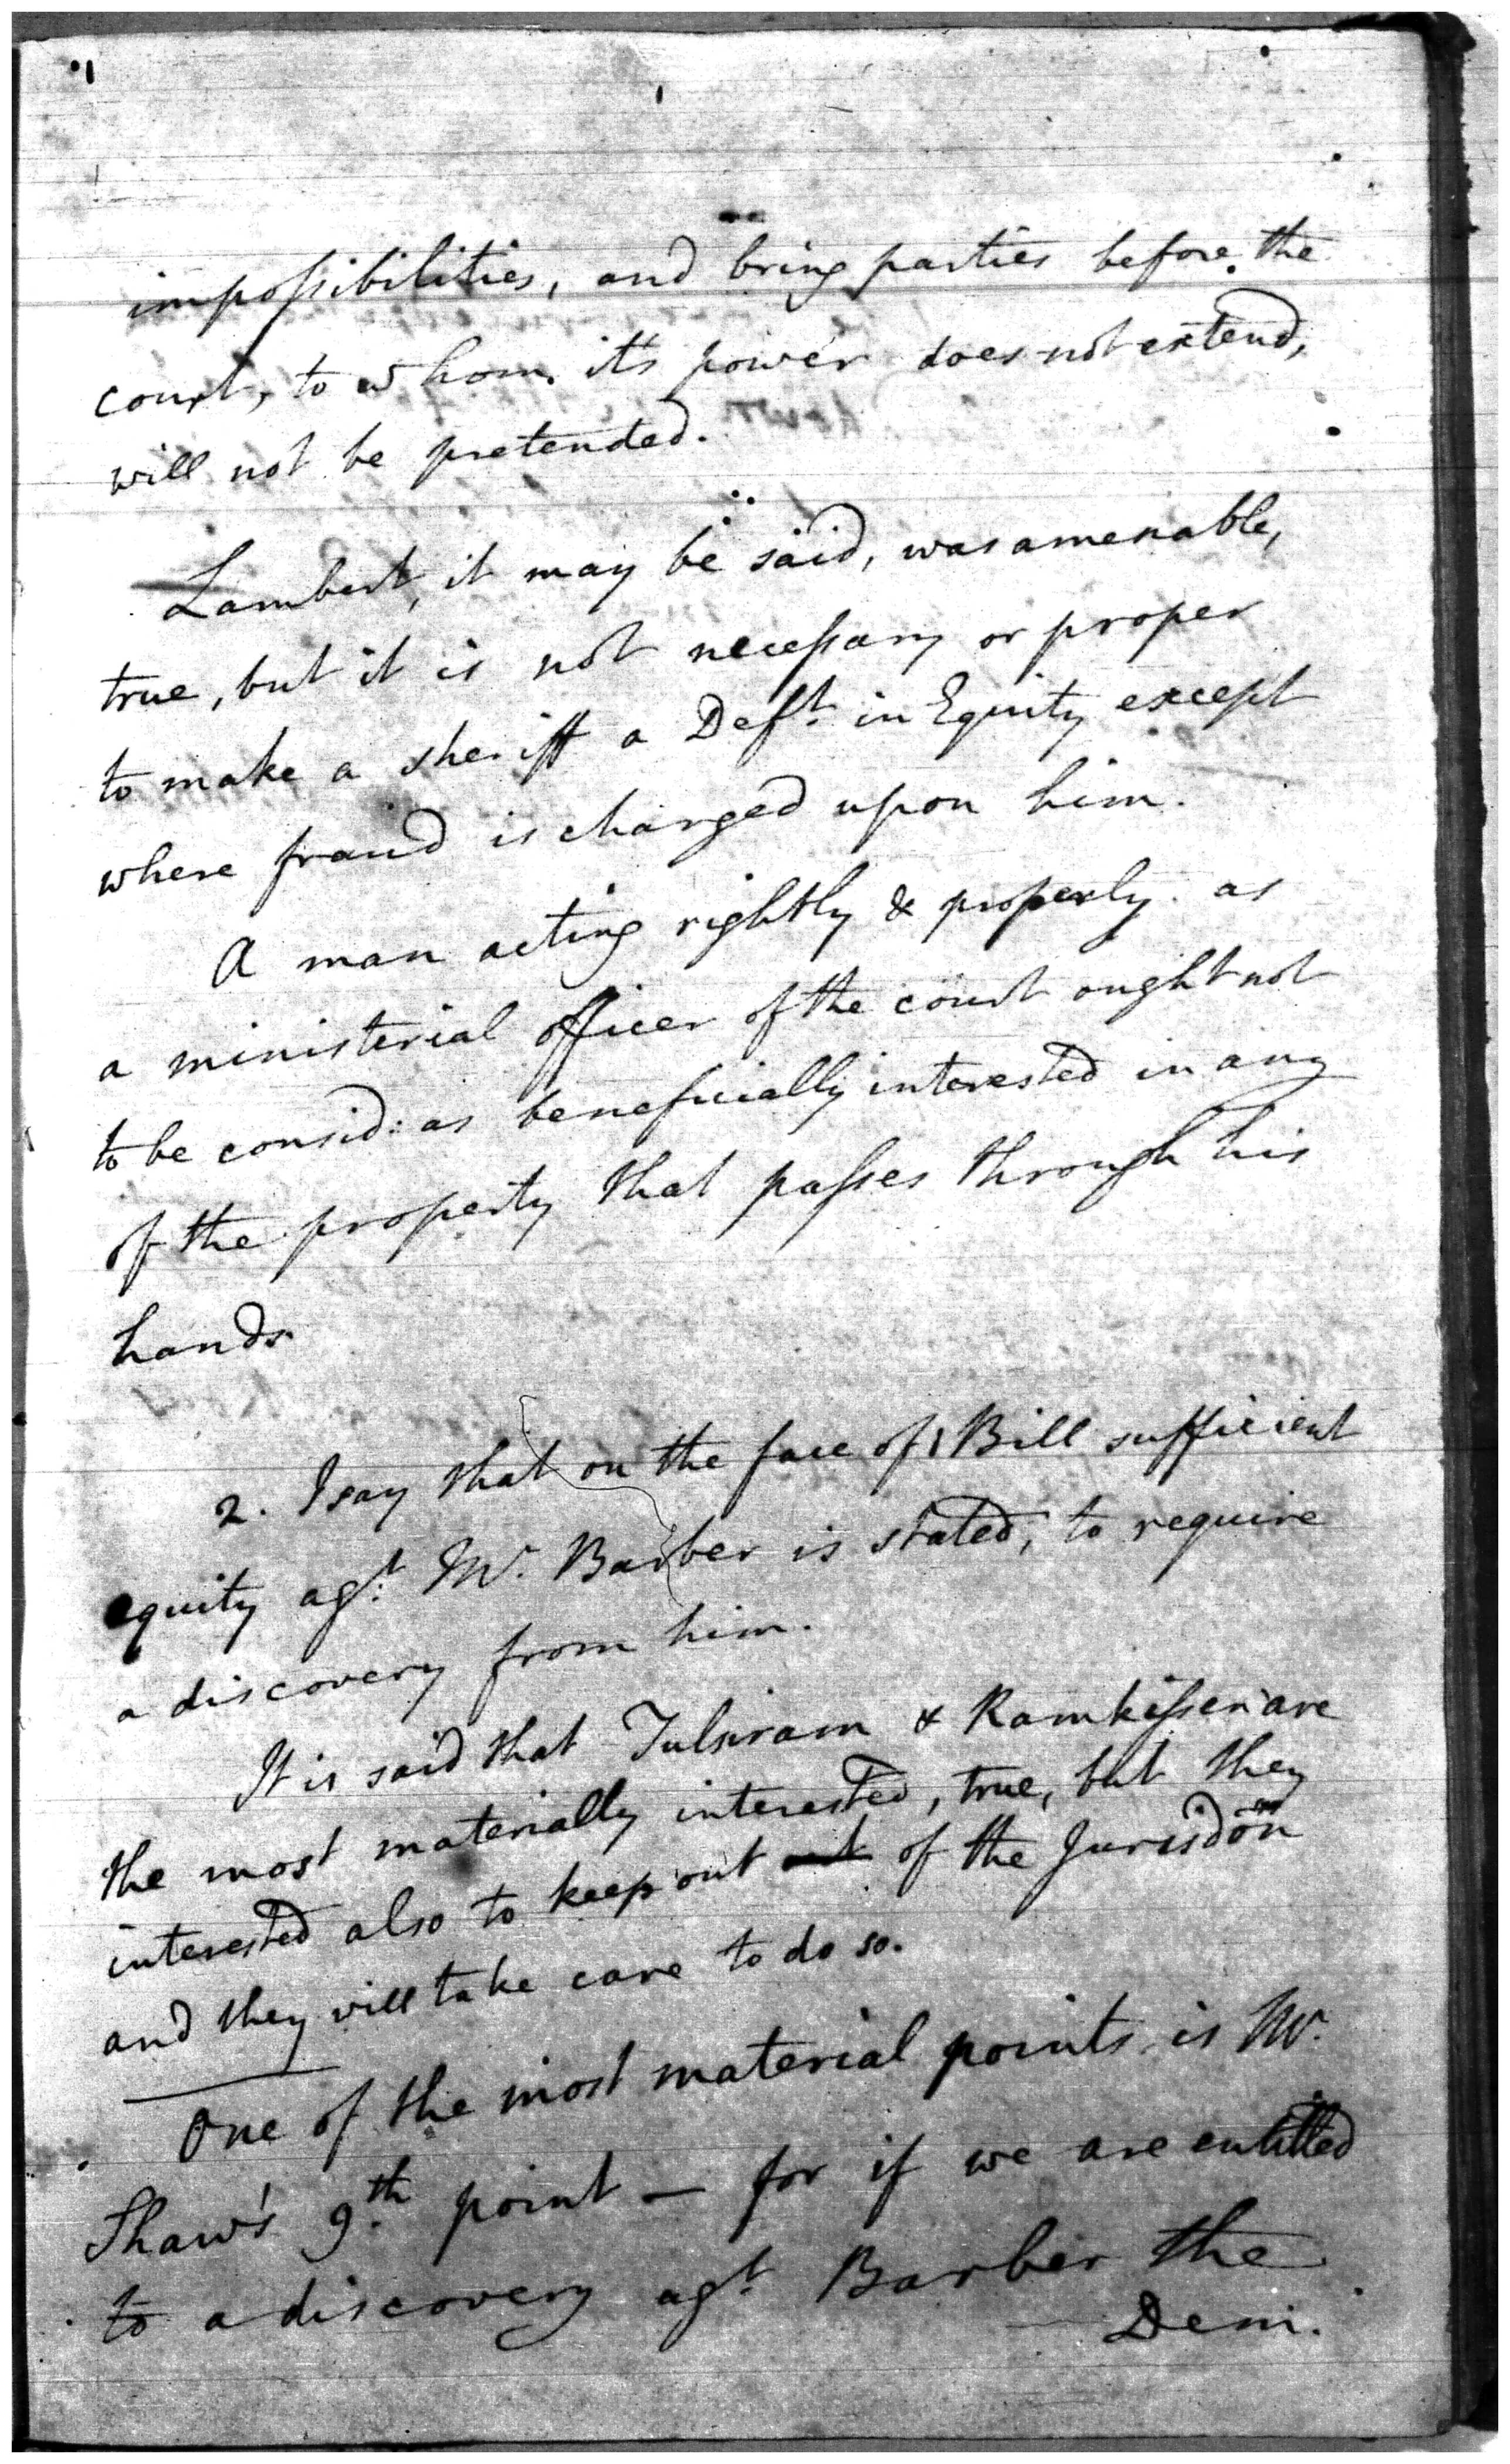 impossibilities, and bring parties before the
court, to whom it's power does not extend,
will not be pretended.
Lambert, it may be said, was amenable,
true, but it is not necessary or proper
to make a sheriff a Deft. in Equity except
where fraud is charged upon him.
A man acting rightly & properly as
a ministerial officer of the court ought not
to be consid: as beneficially interested in any
of the property that passes through his
hands.
2. I say that on the face of Bill sufficient
equity agt. Mr. Barber is stated, to require
a discovery from him.
It is said that Tulsiram & Ramkissen are
the most materially interested, true, but they
interested also to keep out of the Jurisdon
and they will take care to do so.
One of the most material points is Mr.
Shaw's 9th. point — for if we are entitled
to a discovery agt. Barber the
Dem.